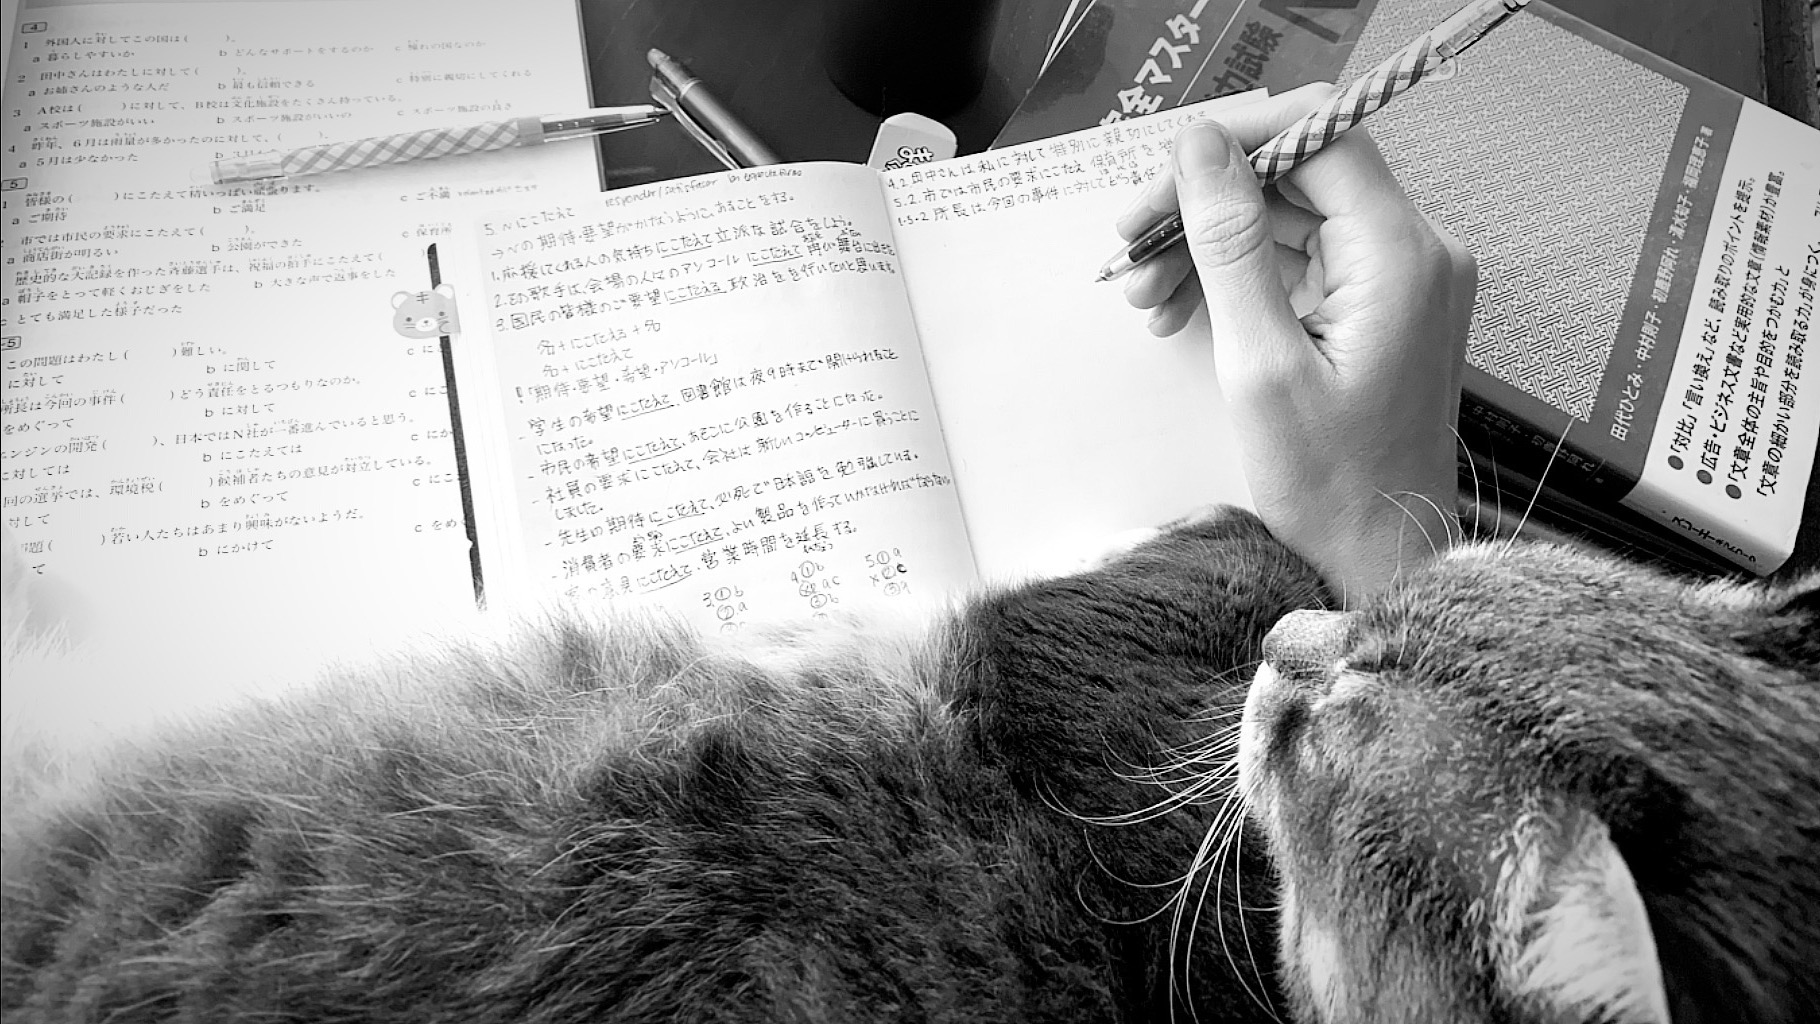 4
1 外国人に対してこの国は( )。
a 暮らしやすいか b どんなサポートをするのか c 憧れの国なのか
2 田中さんはわたしに対して( )。
a お姉さんのような人だ b 最も信頼できる c 特別に親切にしてくれる
3 A校は( )に対して、B校は文化施設をたくさん持っている。
a スポーツ施設がいい b スポーツ施設がいいの c スポーツ施設の良さ
4 昨年、6月は雨量が多かったのに対して、( )。
a 5月は少なかった b
5
1 皆様の( )にこたえて精いっぱい頑張ります。
a ご期待 b ご満足 c ご不満
市では市民の要求にこたえて( )。
a 商店街が明るい b 公園ができた c 保育所
歴史的な大記録を作った斉藤選手は、祝福の拍手にこたえて(
a 帽子をとって軽くおじぎをした b 大きな声で返事をした
c とても満足した様子だった
5
この問題はわたし( )難しい。
に対して b に関して c に
所長は今回の事件( )どう責任をとるつもりなのか。
をめぐって b に対して c にこ
エンジンの開発( )、日本ではN社が一番進んでいると思う。
に対しては b にこたえては c にか
回の選挙では、環境税( )候補者たちの意見が対立している。
対して b をめぐって c にこ
題( )若い人たちはあまり興味がないようだ。
て b にかけて c をめ
5. Nにこたえて
→Nの期待・要望がかなうように、あることをする。
1.応援してくれる人の気持ちにこたえて立派な試合をしよう。
2.その歌手は、会場の人々のアンコールにこたえて再び舞台に出
3.国民の皆様のご要望にこたえる政治を行いたいと思います。
名+にこたえる+名
名+にこたえて
!「期待・要望・希望・アンコール」
- 学生の希望にこたえて、図書館は夜9時まで開けられること
になった。
- 市民の希望にこたえて、あそこに公園を作ることになった。
- 社員の要求にこたえて、会社は新しいコンピューターに買うことに
しました。
- 先生の期待にこたえて、必死で日本語を勉強している。
- 消費者の要求にこたえて、よい製品を作っていかなければならない
意見にこたえて、営業時間を延長する。
3.①b
②a
4.①b
ac
②b
5.①a
×②c
③a
4.2.田中さんは私に対して特別に親切にしてくれる
5.2.市では市民の要求にこたえ保育所を
1-5-2 所長は今回の事件に対してどう責任
完全マスター
力試験
N
田代ひとみ・中村則子・初鹿野阿れ・清水知子・福岡理恵子 著
●「対比」「言い換え」など、読み取りのポイントを提示。
●広告・ビジネス文書など実用的な文章(情報素材)が豊富。
●「文章全体の主旨や目的をつかむ力」と
「文章の細かい部分を読み取る力」が身につく
スリーエーネットワーク